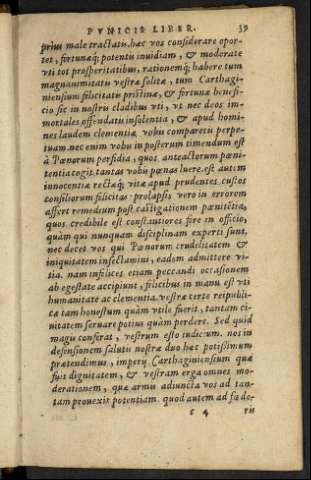 PVNICIS LIBER. 39
prius male tractatis. hæc vos considerare opor-
tet, fortunæq; potentis inuidiam, & moderate
vti tot prosperitatibus, rationemq; habere tum
magnanimitatis vestræ solitæ, tum Carthagi-
niensium felicitatis pristinæ, & fortunæ benefi-
cio sic in nostris cladibus vti, vt nec deos im-
mortales offendatis insolentia, & apud homi-
nes laudem clementiæ vobis comparetis perpe-
tuam. nec enim vobis in posterum timendum est
à Pœnorum perfidia, quos anteactorum pœni-
tentia cogit tantas vobis pœnas luere. est autem
innocentia rectæq; vitæ apud prudentes custos
consiliorum felicitas: prolapsis vero in errorem
affert remedium post castigationem pœnitētia,
quos credibile est constantiores fore in officio,
quàm qui nunquam disciplinam experti sunt.
nec decet vos qui Pœnorum crudelitatem &
iniquitatem insectamini, eadem admittere vi-
tia. nam infelices etiam peccandi occasionem
ab egestate accipiunt, felicibus in manu est vti
humanitate ac clementia. vestræ certe reipubli-
cæ tam honestum quàm vtile fuerit, tantam ci-
uitatem seruare potius quàm perdere. Sed quid
magis conferat, vestrum esto iudicium. nos in
defensionem salutis nostræ duo hæc potissimum
prætendimus, imperij Carthaginiensium quæ
fuit dignitatem, & vestram erga omnes mo-
derationem, quæ armis adiuncta vos ad tan-
tam prouexit potentiam. quod autem ad fœde-
c 4 ris